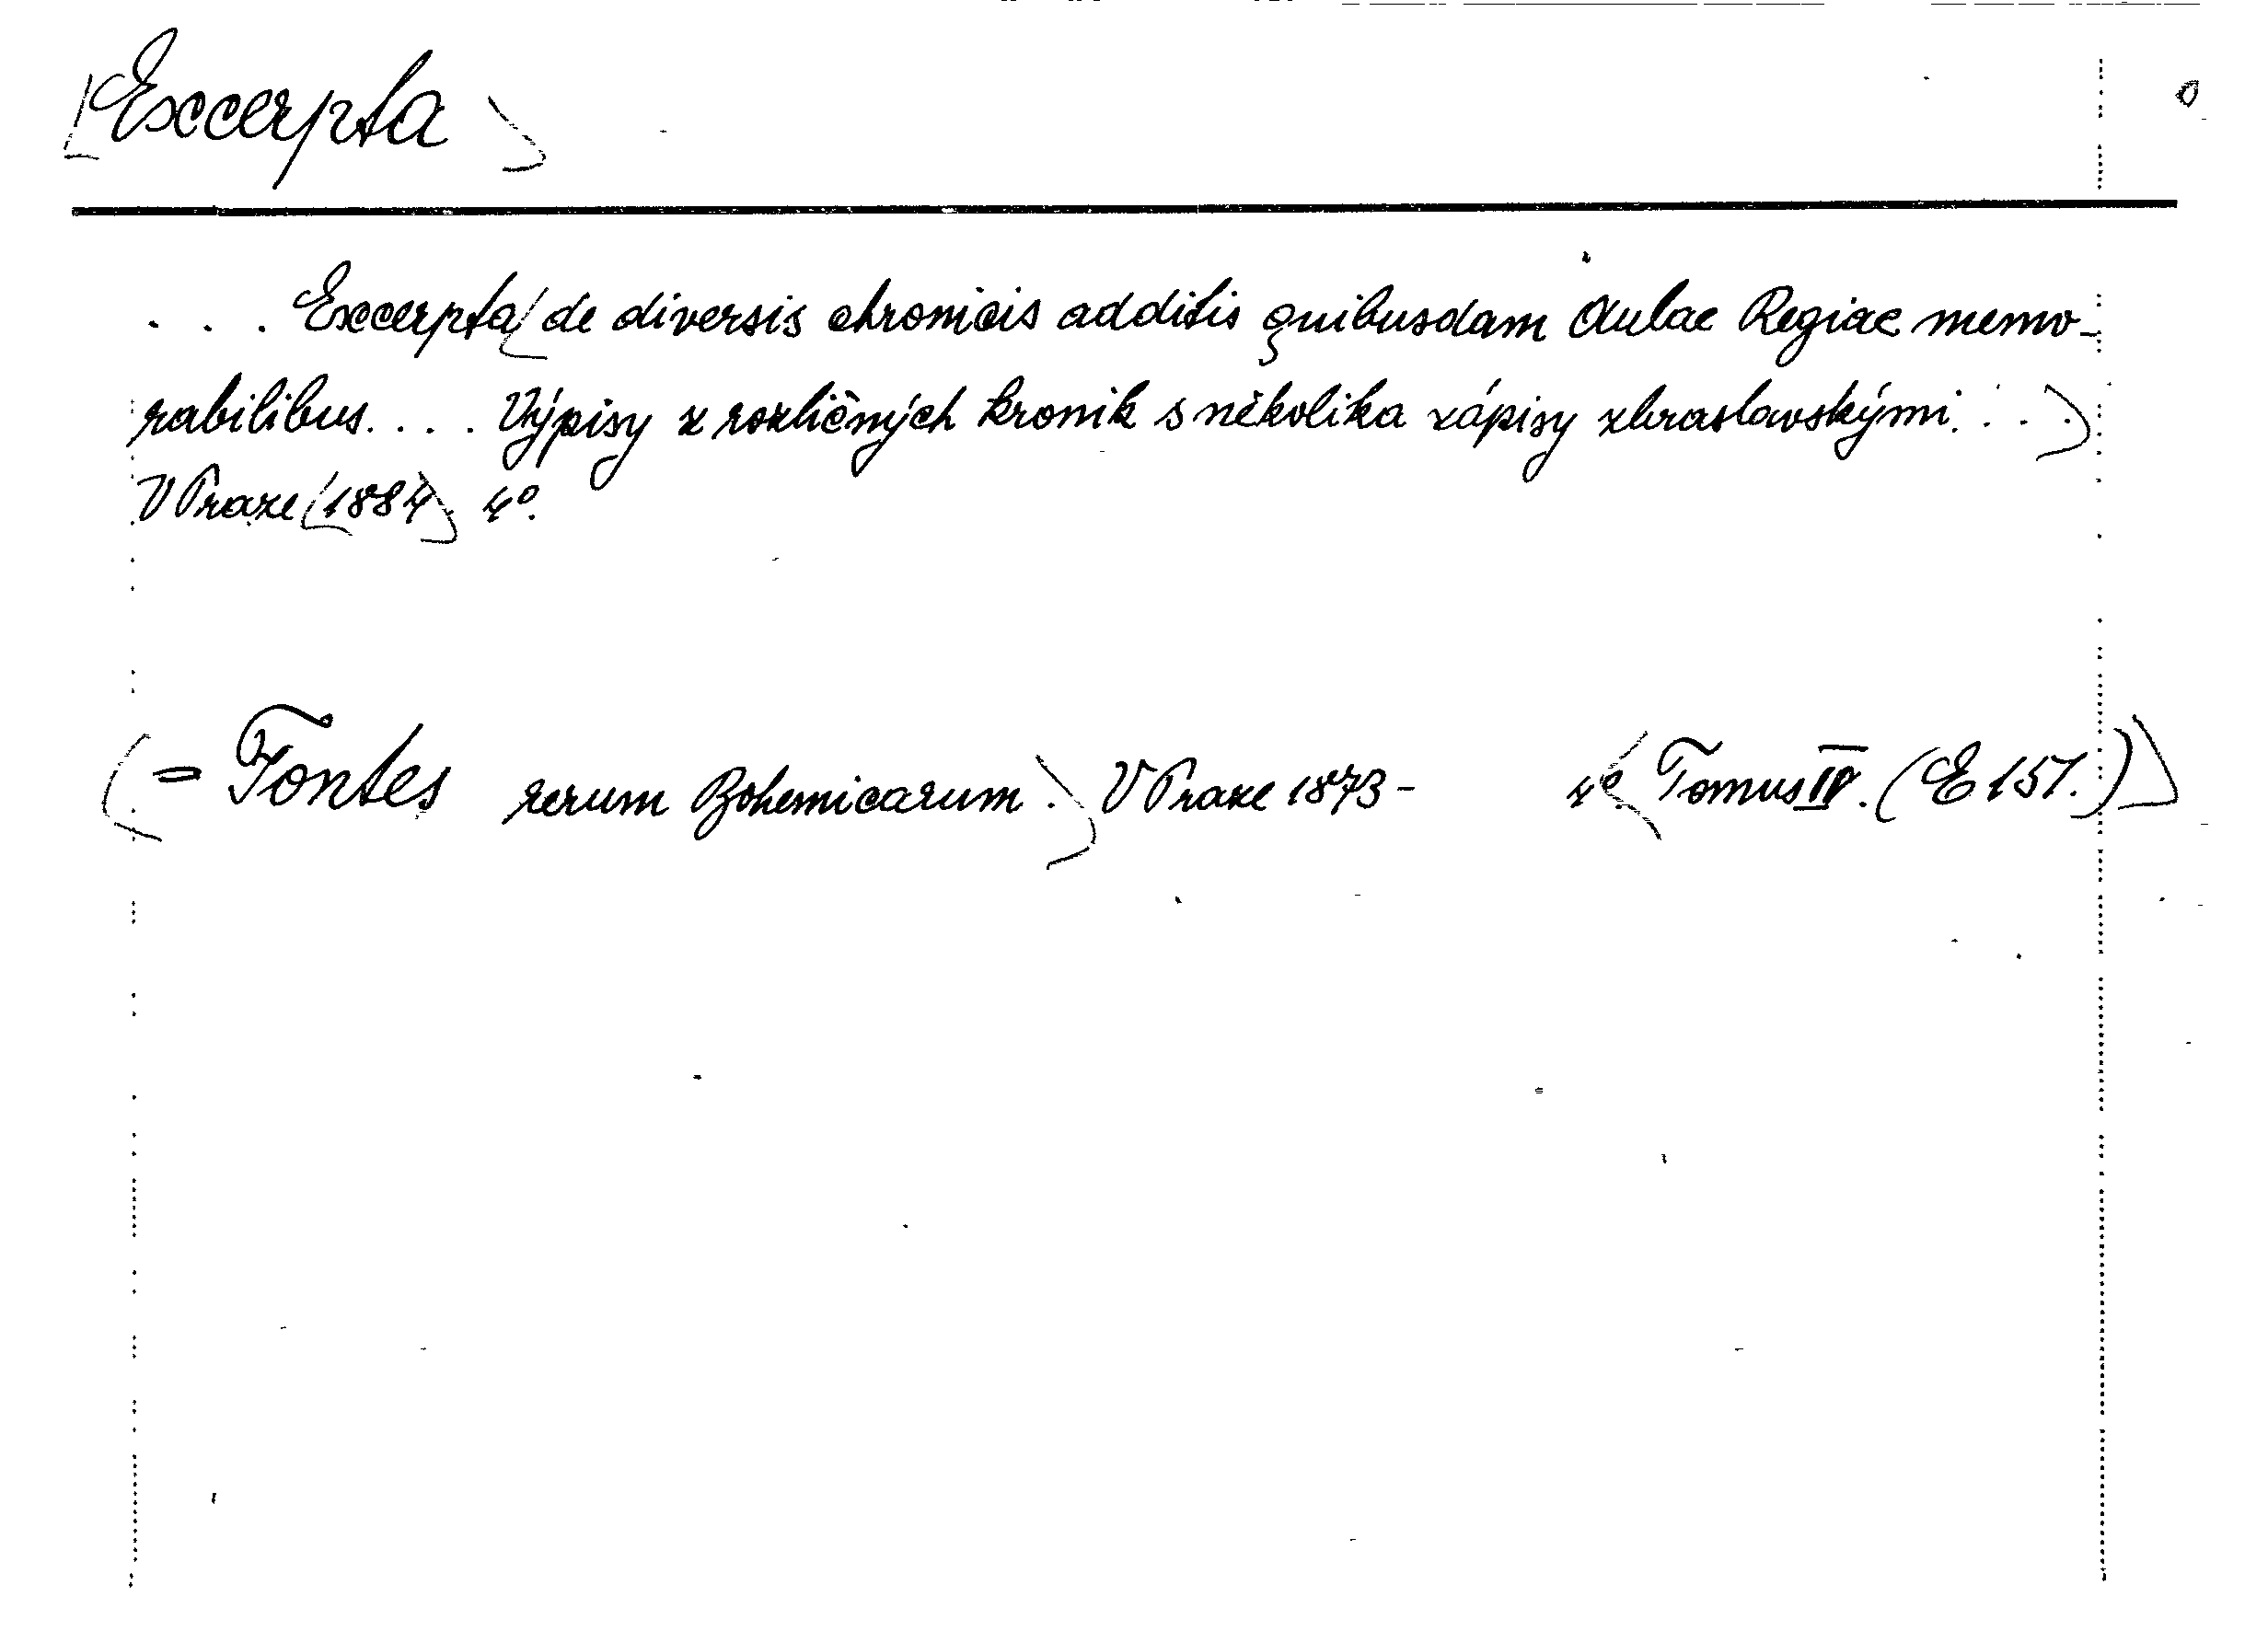 [Excerpta]
. . . Excerpta [de diversis chronicis additis quibusdam Aulae Regiae memo-
rabilibus. . . . Výpisy z rozličných kronik s několika zápisy zbraslavskými. . . .]
V Praze [1884]. 4°.
(= Fontes rerum Bohemicarum.) V Praze 1873- 4°. (Tomus IV. (E 151.))